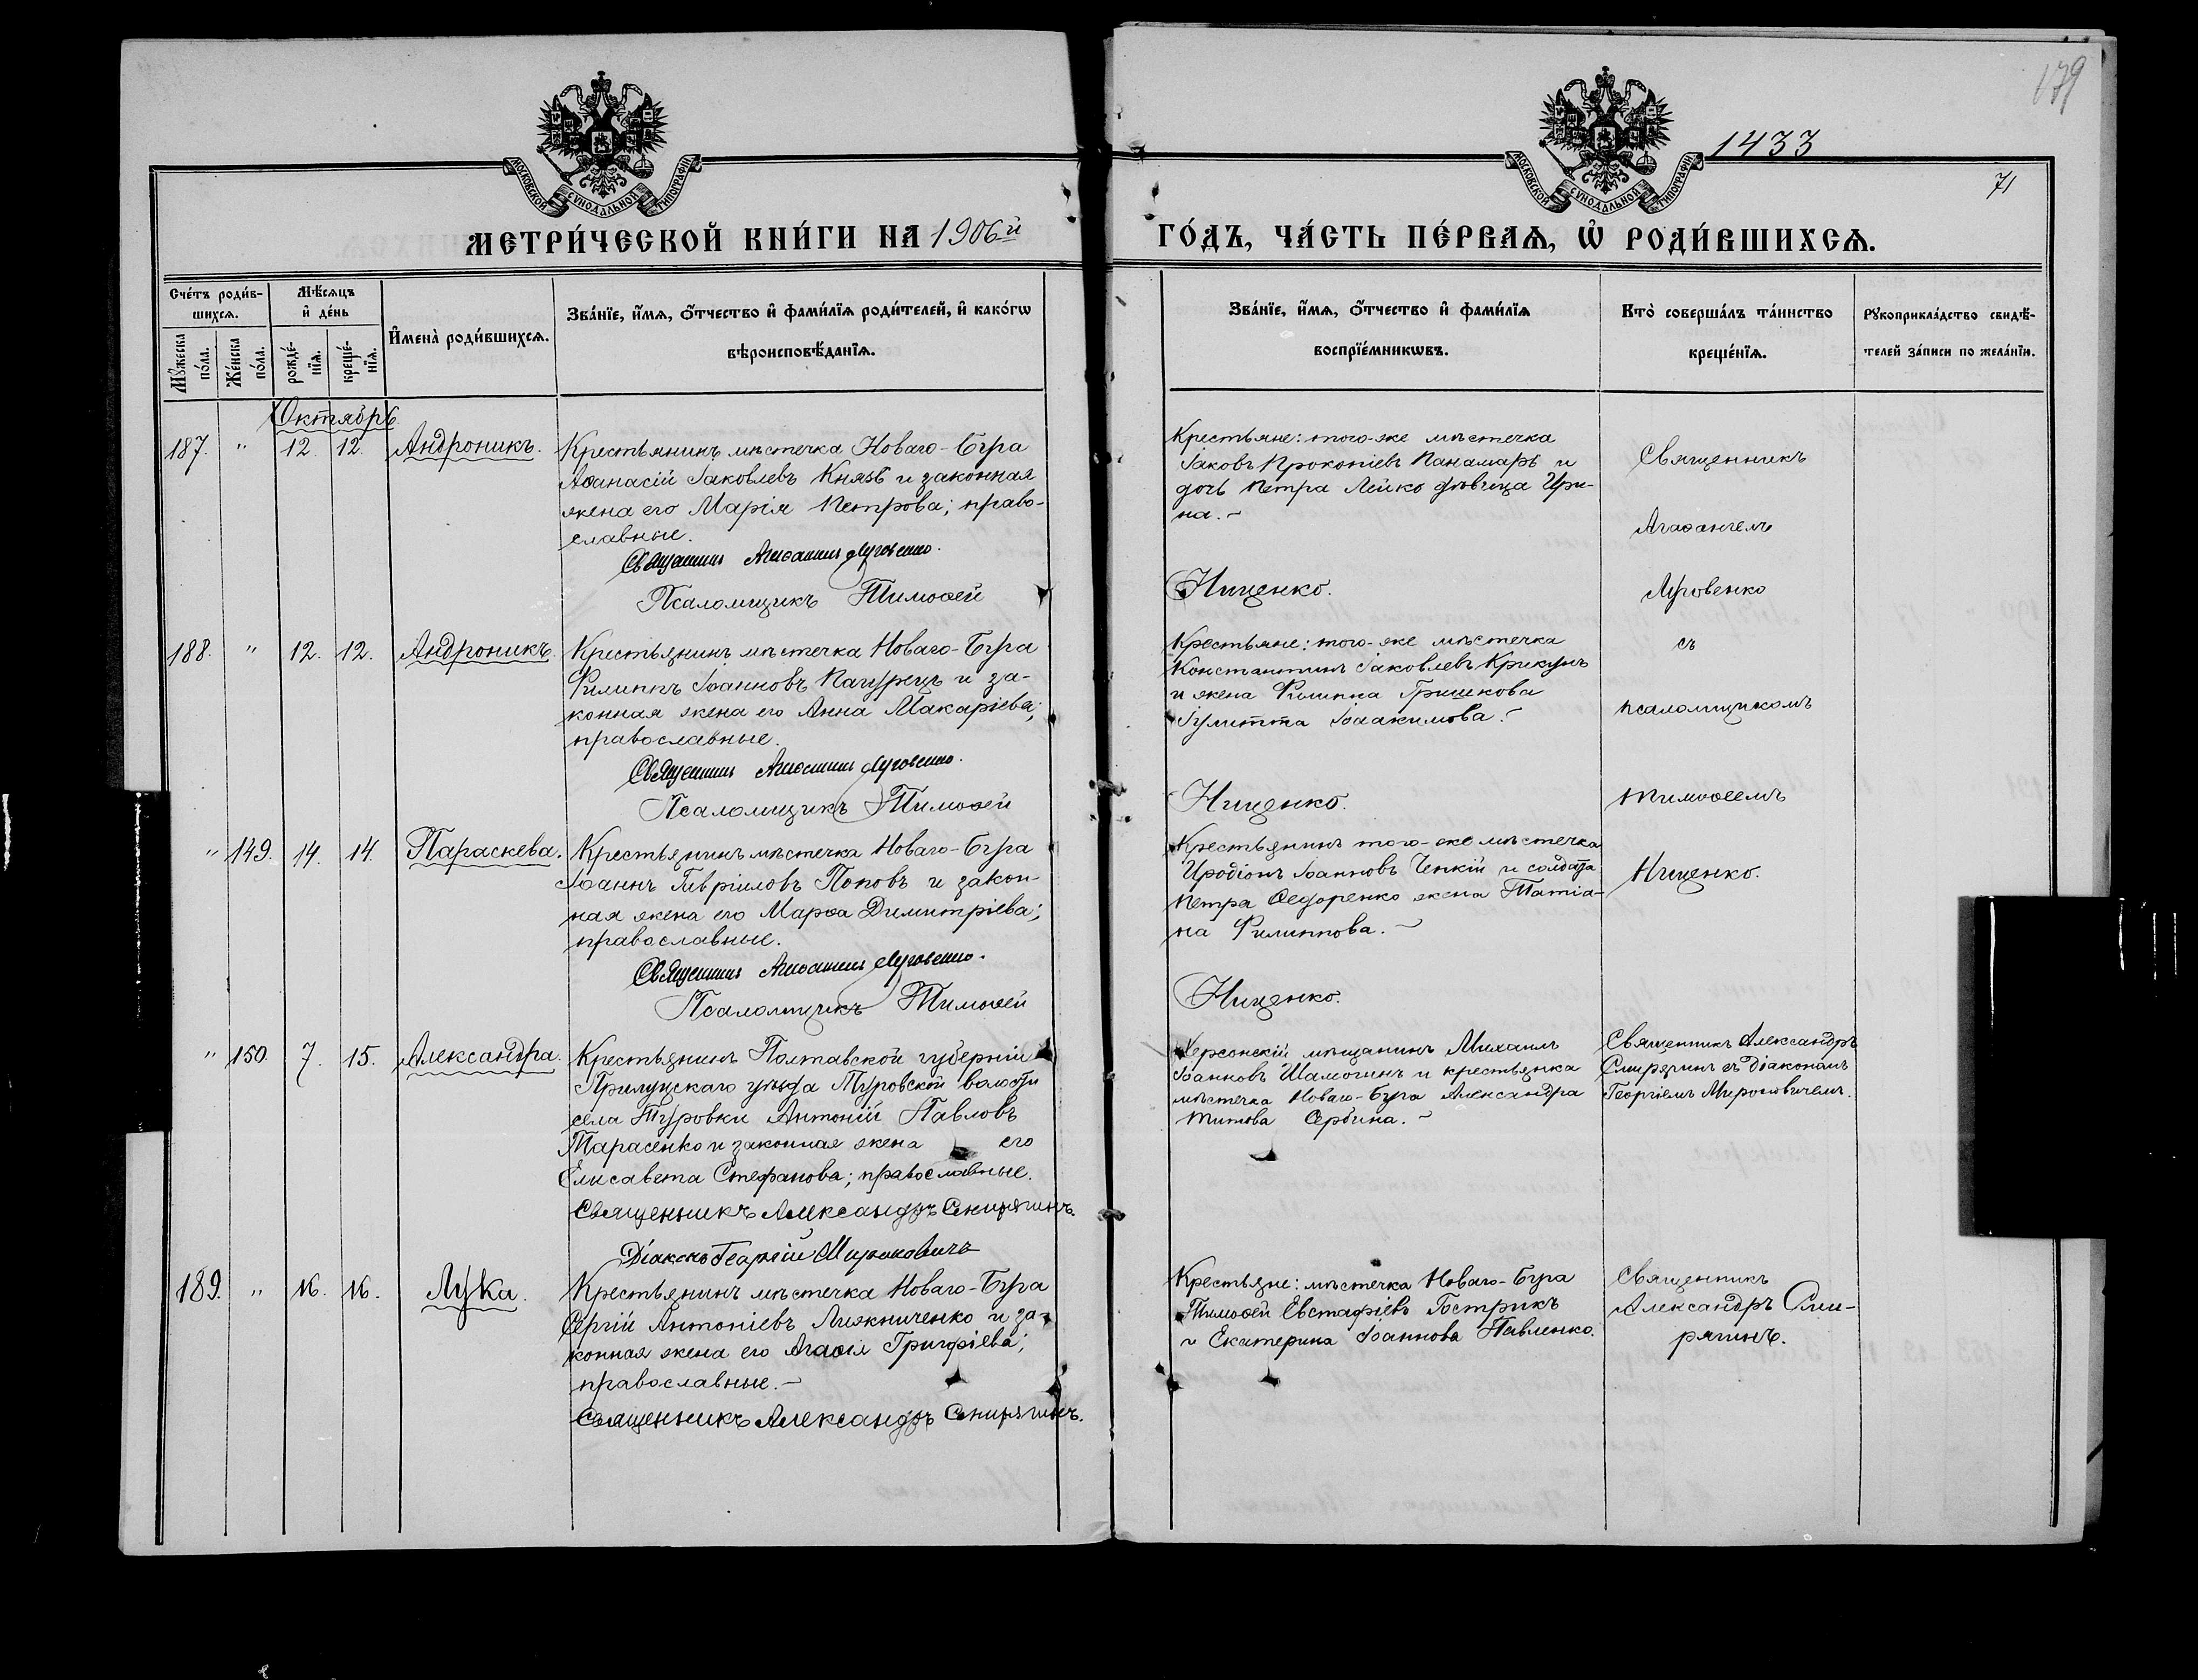 179
1433
71
МОСКОВСКОЙ СѴНОДАЛЬНОЙ ТИПОГРАФІИ
МОСКОВСКОЙ СѴНОДАЛЬНОЙ ТИПОГРАФІИ
МЕТРИ́ЧЕСКОЙ КНИ́ГИ НА 1906й
ГО́ДЪ, ЧА́СТЬ ПЕ́РВАѦ, Ѡ҆ РОДИ́ВШИХСѦ.
Сче́тъ роди́в-
шихсѧ.
Мѣ́сѧцъ
и҆ де́нь
Мꙋ́жеска по́ла.
Же́нска по́ла.
рожде́-
нїѧ.
креще́-
нїѧ.
И҆мена̀ роди́вшихсѧ.
Зва́нїе, и҆́мѧ, ѻ҆́тчество и҆ фами́лїѧ роди́телей, и҆ како́гѡ
вѣроисповѣ́данїѧ.
Зва́нїе, и҆́мѧ, ѻ҆́тчество и҆ фами́лїѧ
воспрїе́мникѡвъ.
Кто̀ соверша́лъ та́инство
креще́нїѧ.
Рꙋкоприкла́дство свидѣ́-
телей за́писи по жела́нїю.
Октябрь
187. " 12. 12. Андроникъ.
Крестьянинъ мѣстечка Новаго-Буга
Аѳанасій Іаковлевъ Князь и законная
жена его Марія Петрова; право-
славные.
Священникъ Агаѳангелъ Луговенко.
Псаломщикъ Тимоѳей
Крестьяне: того-же мѣстечка
Іаковъ Прокопіевъ Панамарь и
дочь Петра Лейко дѣвица Ири-
на.
Нищенко.
Священникъ
Агаѳангелъ
Луговенко
съ
псаломщикомъ
Тимоѳеемъ
Нищенко.
188. " 12. 12. Андроникъ.
Крестьянинъ мѣстечка Новаго-Буга
Филиппъ Іоанновъ Пагурецъ и за-
конная жена его Анна Макаріева;
православные.
Священникъ Агаѳангелъ Луговенко.
Псаломщикъ Тимоѳей
Крестьяне: того-же мѣстечка
Константинъ Іаковлевъ Крикунъ
и жена Филиппа Гришкова
Іулитта Іоакимова.
Нищенко.
" 149. 14. 14. Параскева.
Крестьянинъ мѣстечка Новаго-Буга
Іоаннъ Гавріиловъ Поповъ и закон-
ная жена его Марѳа Димитріева;
православные.
Священникъ Агаѳангелъ Луговенко.
Псаломщикъ Тимоѳей
Крестьянинъ того-же мѣстечка
Иродіонъ Іоанновъ Чепкій и солдата
Петра Ѳедоренко жена Татіа-
на Филиппова.
Нищенко.
" 150. 7. 15. Александра.
Крестьянинъ Полтавской губерніи
Прилуцскаго уѣзда Туровской волости
села Туровки Антоній Павловъ
Тарасенко и законная жена его
Елисавета Стефанова; православные.
Священникъ Александръ Смирягинъ.
Діаконъ Георгій Мироновичъ
Херсонскій мѣщанинъ Михаилъ
Іоанновъ Шамочинъ и крестьянка
мѣстечка Новаго-Буга Александра
Титова Сербина.
Священникъ Александръ
Смирягинъ съ діакономъ
Георгіемъ Мироновичемъ.
189. " 16. 16. Лука.
Крестьянинъ мѣстечка Новаго-Буга
Сергій Антоніевъ Лижниченко и за-
конная жена его Агаѳія Григоріева;
православные.
Священникъ Александръ Смирягинъ.
Крестьяне: мѣстечка Новаго-Буга
Тимоѳей Евстафіевъ Гострикъ
и Екатерина Іоаннова Павленко.
Священникъ
Александръ Сми-
рягинъ.